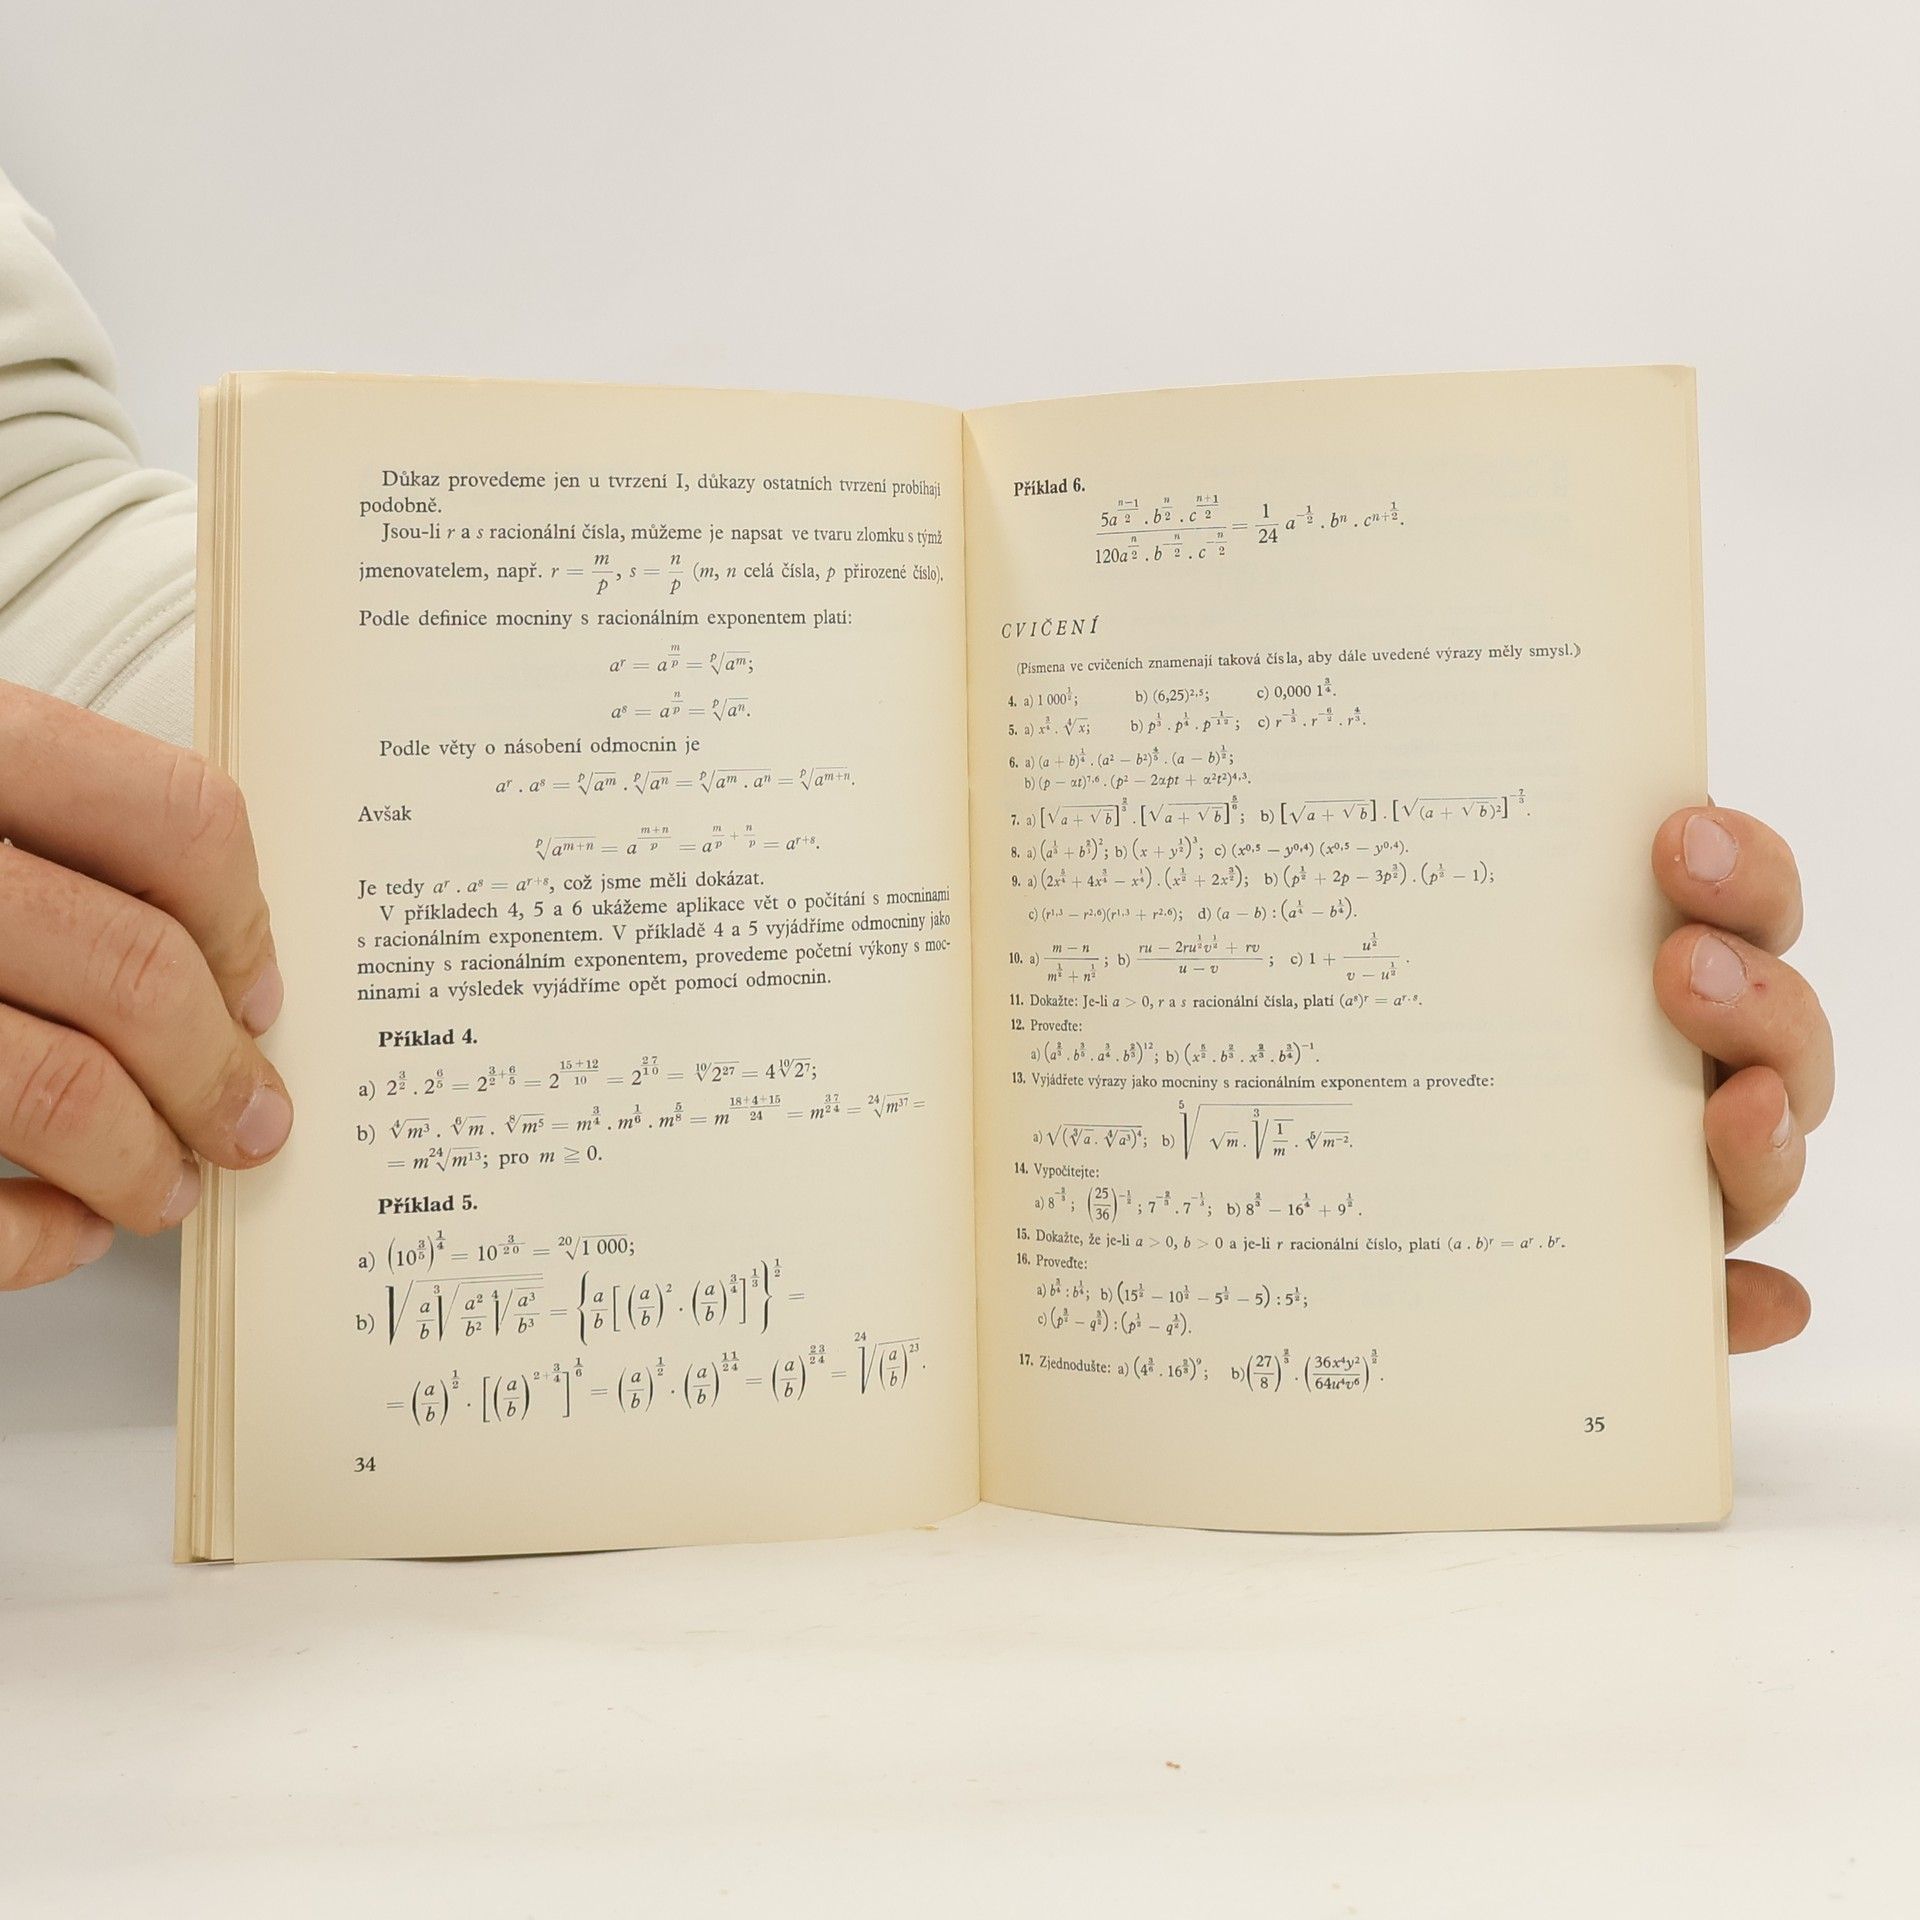 Důkaz provedeme jen u tvrzení I, důkazy ostatních tvrzení probíhají
podobně.
Jsou-li r a s racionální čísla, můžeme je napsat ve tvaru zlomku s týmž
jmenovatelem, např. r = m/p, s = n/p (m, n celá čísla, p přirozené číslo).
Podle definice mocniny s racionálním exponentem platí:
a^r = a^(m/p) = ᵖ√(a^m);
a^s = a^(n/p) = ᵖ√(a^n).
Podle věty o násobení odmocnin je
a^r . a^s = ᵖ√(a^m) . ᵖ√(a^n) = ᵖ√(a^m . a^n) = ᵖ√(a^(m+n)).
Avšak
ᵖ√(a^(m+n)) = a^((m+n)/p) = a^(m/p + n/p) = a^(r+s).
Je tedy a^r . a^s = a^(r+s), což jsme měli dokázat.
V příkladech 4, 5 a 6 ukážeme aplikace vět o počítání s mocninami
s racionálním exponentem. V příkladě 4 a 5 vyjádříme odmocniny jako
mocniny s racionálním exponentem, provedeme početní výkony s moc-
ninami a výsledek vyjádříme opět pomocí odmocnin.
Příklad 4.
a) 2^(3/2) . 2^(6/5) = 2^(3/2+6/5) = 2^((15+12)/10) = 2^(27/10) = ¹⁰√(2^27) = 4 ¹⁰√(2^7);
b) ⁴√(m^3) . ⁶√m . ⁸√(m^5) = m^(3/4) . m^(1/6) . m^(5/8) = m^((18+4+15)/24) = m^(37/24) = ²⁴√(m^37) =
= m ²⁴√(m^13); pro m ≧ 0.
Příklad 5.
a) (10^(3/5))^(1/4) = 10^(3/20) = ²⁰√(1 000);
b) √(a/b ³√(a²/b² ⁴√(a³/b³))) = {a/b [(a/b)^2 . (a/b)^(3/4)]^(1/3)}^(1/2) =
= (a/b)^(1/2) . [(a/b)^(2+3/4)]^(1/6) = (a/b)^(1/2) . (a/b)^(11/24) = (a/b)^(23/24) = ²⁴√((a/b)^23).
34
Příklad 6.
(5a^((n-1)/2) . b^(n/2) . c^((n+1)/2)) / (120a^(n/2) . b^(-n/2) . c^(-n/2)) = 1/24 a^(-1/2) . b^n . c^(n+1/2).
CVIČENÍ
(Písmena ve cvičeních znamenají taková čísla, aby dále uvedené výrazy měly smysl.)
4. a) 1 000^(1/2); b) (6,25)^(2,5); c) 0,000 1^(3/4).
5. a) x^(3/4) . ⁴√x; b) p^(1/3) . p^(1/4) . p^(-1/12); c) r^(-1/3) . r^(-6/2) . r^(4/3).
6. a) (a + b)^(1/4) . (a² – b²)^(4/5) . (a – b)^(1/2);
b) (p – αt)^(7,6) . (p² – 2αpt + α²t²)^(4,3).
7. a) [√(a + √b)]^(2/3) . [√(a + √b)]^(5/6); b) [√(a + √b)] . [√((a + √b)²)]^(-7/3).
8. a) (a^(1/3) + b^(2/3))²; b) (x + y^(1/2))³; c) (x^(0,5) – y^(0,4)) (x^(0,5) – y^(0,4)).
9. a) (2x^(5/4) + 4x^(3/4) – x^(1/4)) . (x^(1/2) + 2x^(3/2)); b) (p^(1/2) + 2p – 3p^(3/2)) . (p^(1/2) – 1);
c) (r^(1,3) – r^(2,6))(r^(1,3) + r^(2,6)); d) (a – b) : (a^(1/4) – b^(1/4)).
10. a) (m – n)/(m^(1/2) + n^(1/2)); b) (ru – 2ru^(1/2)v^(1/2) + rv)/(u – v); c) 1 + u^(1/2)/(v – u^(1/2)).
11. Dokažte: Je-li a > 0, r a s racionální čísla, platí (a^s)^r = a^(r.s).
12. Proveďte:
a) (a^(2/3) . b^(3/5) . a^(3/4) . b^(2/3))^12; b) (x^(5/2) . b^(2/3) . x^(2/3) . b^(3/4))^(-1).
13. Vyjádřete výrazy jako mocniny s racionálním exponentem a proveďte:
a) √((³√a . ⁴√(a³))⁴); b) ⁵√(√m . ³√(1/m) . ⁵√(m^(-2))).
14. Vypočítejte:
a) 8^(-2/3); (25/36)^(-1/2); 7^(-2/3) . 7^(-1/3); b) 8^(2/3) – 16^(1/4) + 9^(1/2).
15. Dokažte, že je-li a > 0, b > 0 a je-li r racionální číslo, platí (a . b)^r = a^r . b^r.
16. Proveďte:
a) b^(3/4) : b^(1/4); b) (15^(1/2) – 10^(1/2) – 5^(1/2) – 5) : 5^(1/2);
c) (p^(3/2) – q^(3/2)) : (p^(1/2) – q^(1/2)).
17. Zjednodušte: a) (4^(3/6) . 16^(2/3))^9; b) (27/8)^(2/3) . (36x⁴y²/64u⁴v⁶)^(3/2).
35